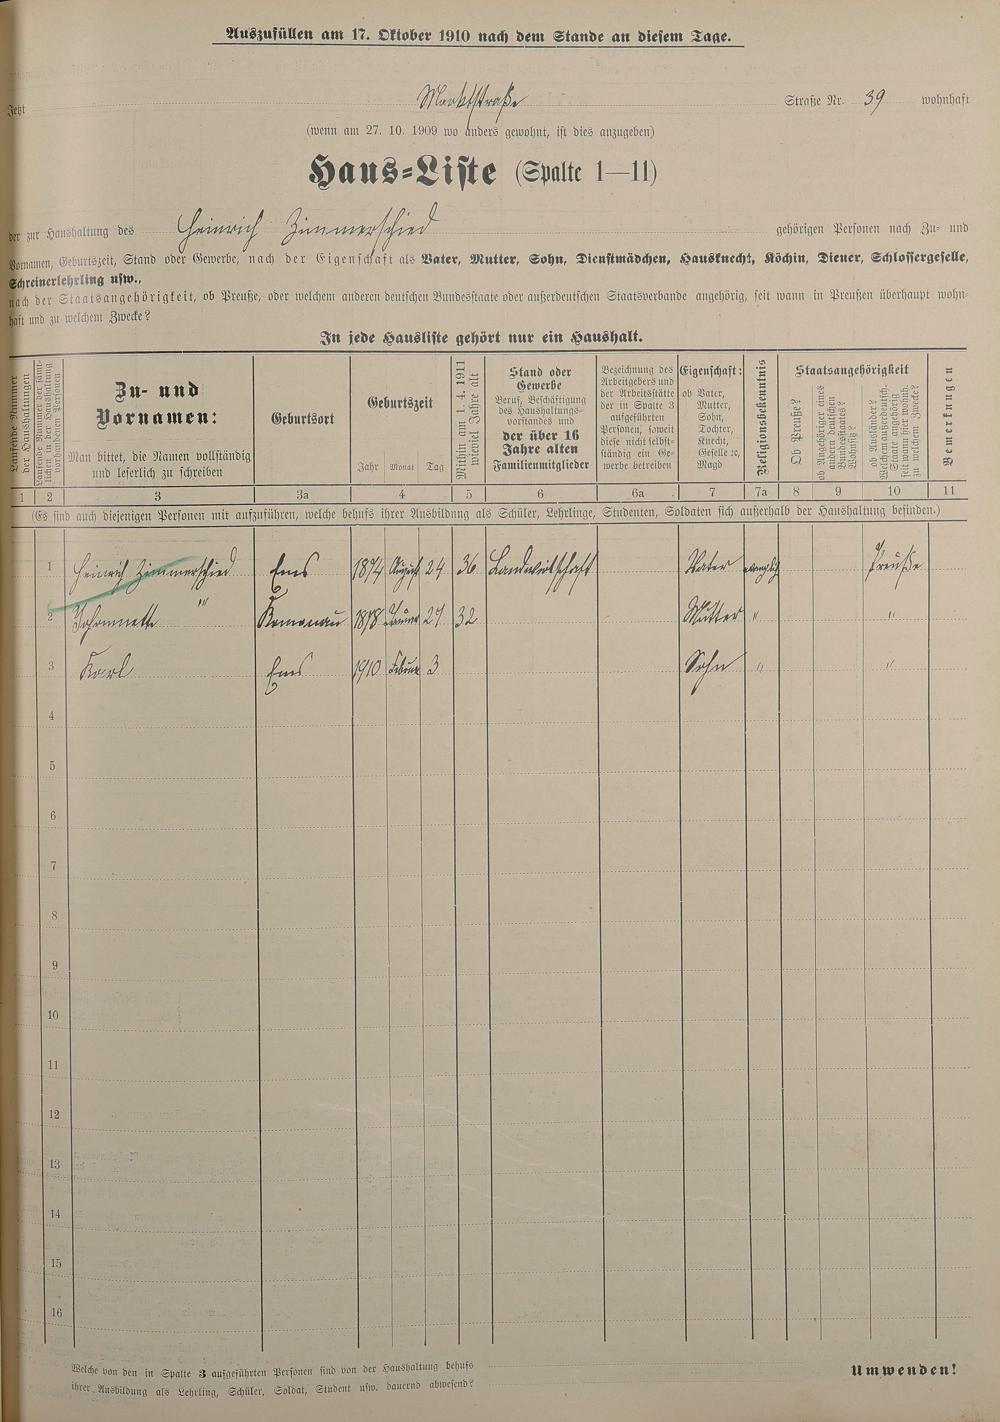 Auszufüllen am 17. Oktober 1910 nach dem Stande an diesem Tage.
Jetzt Marktstraße Straße Nr. 39 wohnhaft
(wenn am 27. 10. 1909 wo anders gewohnt, ist dies anzugeben)
Haus=Liste (Spalte 1—11)
der zur Haushaltung des Heinrich Zimmerschied gehörigen Personen nach Zu- und
Vornamen, Geburtszeit, Stand oder Gewerbe, nach der Eigenschaft als Vater, Mutter, Sohn, Dienstmädchen, Hausknecht, Köchin, Diener, Schlossergeselle,
Schreinerlehrling usw.,
nach der Staatsangehörigkeit, ob Preuße, oder welchem anderen deutschen Bundesstaate oder außerdeutschen Staatsverbande angehörig, seit wann in Preußen überhaupt wohn-
haft und zu welchem Zwecke?
In jede Hausliste gehört nur ein Haushalt.
Laufende Nummer
der Haushaltungen
Laufende Nummer der sämt-
lichen in der Haushaltung
vorhandenen Personen
Zu- und
Vornamen:
Man bittet, die Namen vollständig
und leserlich zu schreiben
Geburtsort
Geburtszeit
Jahr Monat Tag
Mithin am 1. 4. 1911
wieviel Jahre alt
Stand oder
Gewerbe
Beruf, Beschäftigung
des Haushaltungs-
vorstandes und
der über 16
Jahre alten
Familienmitglieder
Bezeichnung des
Arbeitgebers und
der Arbeitsstätte
der in Spalte 3
aufgeführten
Personen, soweit
diese nicht selbst-
ständig ein Ge-
werbe betreiben
Eigenschaft:
ob Vater,
Mutter,
Sohn,
Tochter,
Knecht,
Geselle ꝛc,
Magd
Religionsbekenntnis
Staatsangehörigkeit
Ob Preuße?
ob Angehöriger eines
andern deutschen
Bundesstaates?
Wohnsitz?
ob Ausländer?
Welchem außerdeutsch.
Staate angehörig
seit wann hier wohnh.
zu welchem Zwecke?
Bemerkungen
1 2 3 3a 4 5 6 6a 7 7a 8 9 10 11
(Es sind auch diejenigen Personen mit aufzuführen, welche behufs ihrer Ausbildung als Schüler, Lehrlinge, Studenten, Soldaten sich außerhalb der Haushaltung befinden.)
1 Heinrich Zimmerschied Ems 1874 August 24 36 Landwirtschaft Vater evanglisch Preuße
2 " Kemenau 1878 Januar 27 32 Mutter " "
3 Karl Ems 1910 Februar 3 Sohn " "
4
5
6
7
8
9
10
11
12
13
14
15
16
Welche von den in Spalte 3 aufgeführten Personen sind von der Haushaltung behufs
ihrer Ausbildung als Lehrling, Schüler, Soldat, Student usw. dauernd abwesend?
Umwenden!